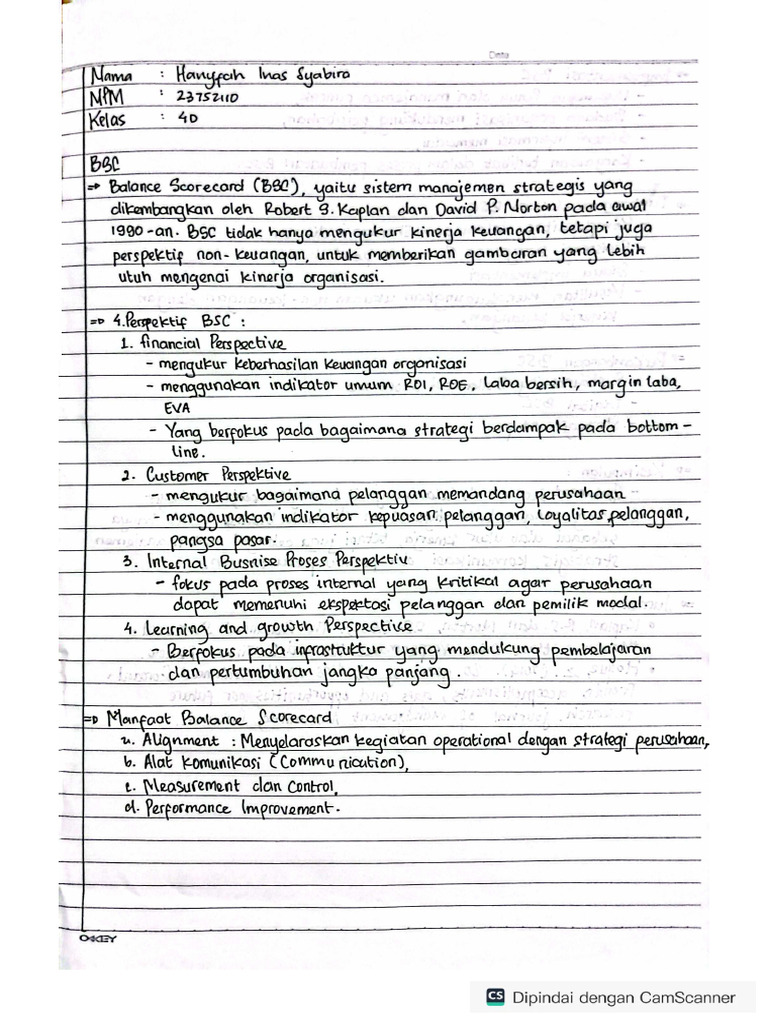 Date
Nama : Hanyfah Inas Syabira
NPM : 23752110
Kelas : 4D
BSC
=> Balance Scorecard (BSC), yaitu sistem manajemen strategis yang
dikembangkan oleh Robert S. Kaplan dan David P. Norton pada awal
1990-an. BSC tidak hanya mengukur kinerja keuangan, tetapi juga
perspektif non-keuangan, untuk memberikan gambaran yang lebih
utuh mengenai kinerja organisasi.
=> 4.Perspektif BSC :
1. financial Perspective
- mengukur keberhasilan keuangan organisasi
- menggunakan indikator umum ROI, ROE, Laba bersih, margin laba,
EVA
- Yang berfokus pada bagaimana strategi berdampak pada bottom-
line.
2. Customer Perspektive
- mengukur bagaimana pelanggan memandang perusahaan
- menggunakan indikator kepuasan pelanggan, loyalitas pelanggan,
pangsa pasar.
3. Internal Busnise Proses Perspektiv
- fokus pada proses internal yang kritikal agar perusahaan
dapat memenuhi ekspektasi pelanggan dan pemilik modal.
4. Learning and growth Perspective
- Berfokus pada infrastruktur yang mendukung pembelajaran
dan pertumbuhan jangka panjang.
=> Manfaat Balance Scorecard
a. Alignment : Menyelaraskan kegiatan operational dengan strategi perusahaan,
b. Alat Komunikasi (Communication),
c. Measurement dan Control,
d. Performance Improvement.
OKEY
CS Dipindai dengan CamScanner